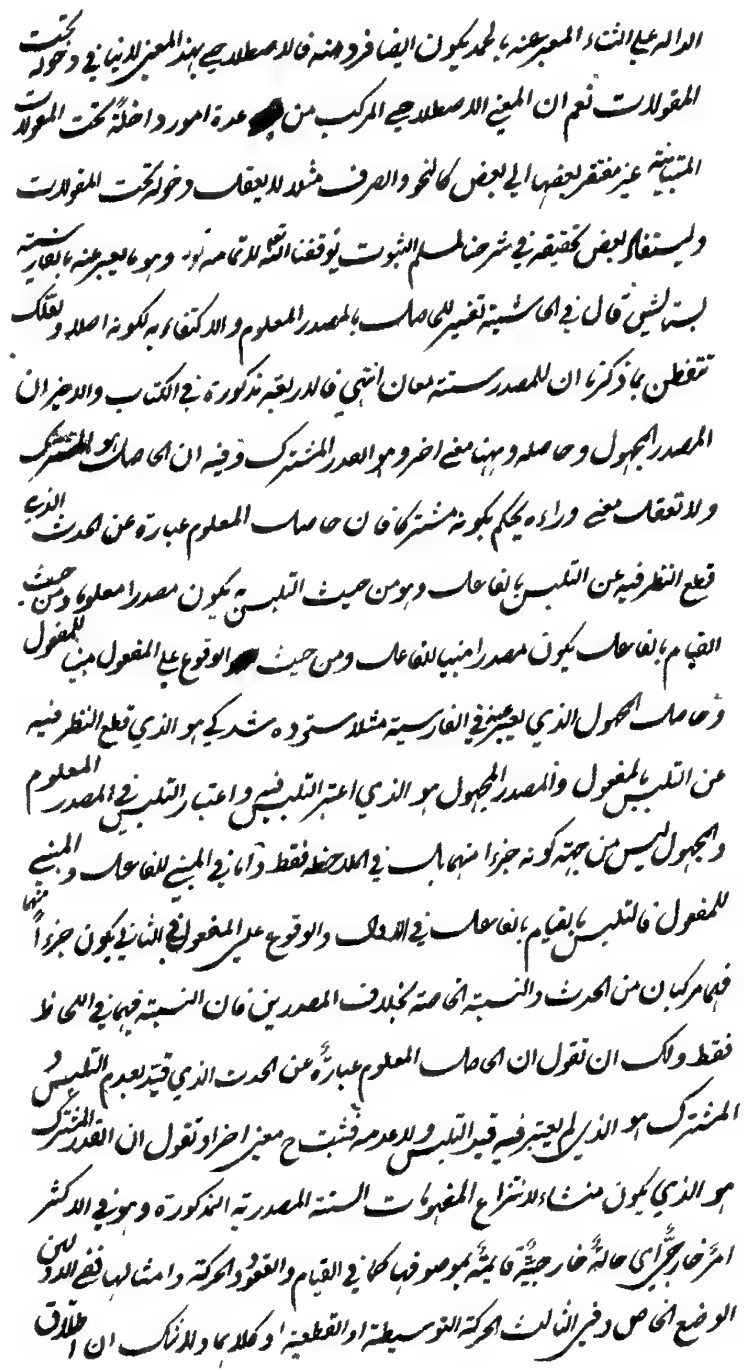 الدالة علي الثناء المعبر عنه بالحمد يكون ايضا فردا منه فالاصطلاحي بهذا المعنى لا ينافي دخوله تحت
المقولات نعم ان المعنى الاصطلاحي المركب من عدة امور داخلة تحت المقولات
المتبائنة غير مفتقر بعضها الي بعض كالنحو والصرف مثلا لا يعقل دخوله تحت المقولات
وليستفاد بعض تحقيقه في شرحنا لمسلم الثبوت يوفقنا الله لاتمامه قوله وهو ما يعبر عنه بالفارسية
قال في الحاشية تفسير للحاصل بالمصدر المعلوم والاكتفاء به لكونه اصلا ولعلك
تتفطن بما ذكرنا ان للمصدر ستة معان انتهي فالاربعة مذكورة في الكتاب والاخيران
المصدر المجهول وحاصله وههنا معنى اخر وهو القدر المشترك وفيه ان الحاصل هو المشترك
ولا تعقل معنى وراءه يحكم بكونه مشتركا فان حاصل المعلوم عبارة عن الحدث الذي
قطع النظر فيه عن التلبس بالفاعل وهو من حيث التلبس به يكون مصدرا معلوما ومن حيث
القيام بالفاعل يكون مصدرا مبنيا للفاعل ومن حيث الوقوع علي المفعول مبنيا للمفعول
وحاصل المجهول الذي يعبر عنه في الفارسية مثلا ستوده شدگي هو الذي قطع النظر فيه
عن التلبس بالمفعول والمصدر المجهول هو الذي اعتبر التلبس فيه واعتبار التلبس في المصدر المعلوم
والمجهول ليس من جهة كونه جزءا منهما بل في الملاحظة فقط واما في المبني للفاعل والمبني
للمفعول فالتلبس بالقيام بالفاعل في الاول والوقوع علي المفعول في الثاني يكون جزءا منهما
فهما مركبان من الحدث والنسبة الخاصة بخلاف المصدرين فان النسبة فيهما في اللحاظ
فقط ولك ان تقول ان الحاصل المعلوم عبارة عن الحدث الذي قيد بعدم التلبس و
المشترك هو الذي لم يعتبر فيه قيد التلبس ولا عدمه فثبت ح معنى اخر او تقول ان القدر المشترك
هو الذي يكون منشاء لانتزاع المفهومات الستة المصدرية المذكورة وهو في الاكثر
امر خارجي اي حالة خارجية قائمة بموصوفها كما في القيام والقعود والحركة وامثالها ففي الاولين
الوضع الخاص وفي الثالث الحركة التوسطية او القطعية او كلاهما ولا شك ان اطلاق